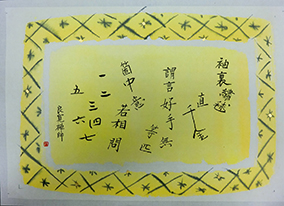 袖裏繍毬
直千金
謂言好手無
等匹
箇中意
若相問
一二三四七
五六
良寛禅師